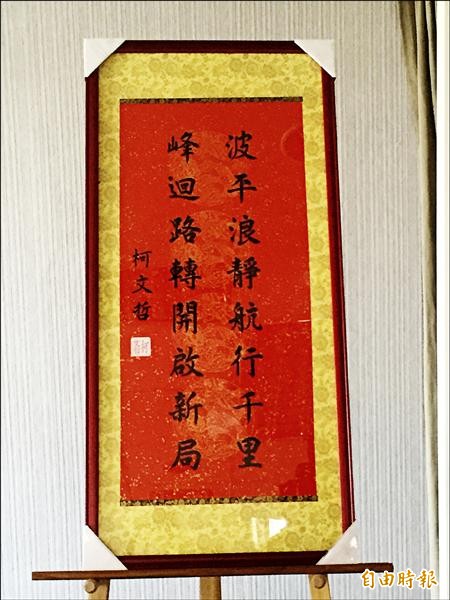 波平浪靜航行千里
峰迴路轉開啟新局
柯文哲
自由時報